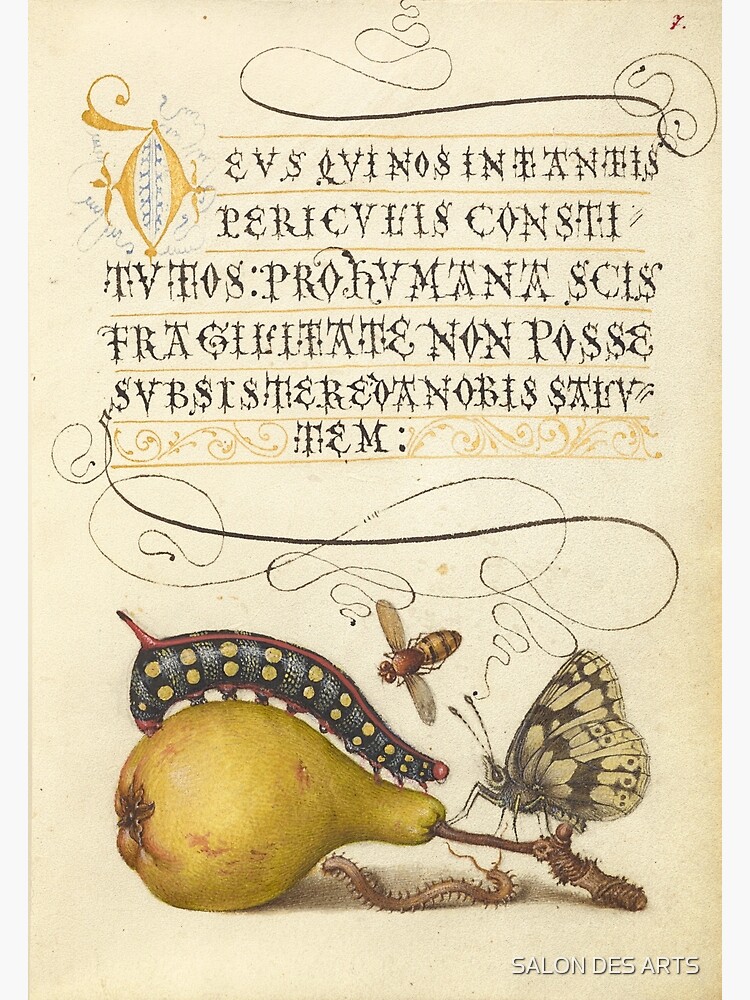 7.
DEVS QVI NOS IN TANTIS
PERICVLIS CONSTI=
TVTOS: PRO hVMANA SCIS
FRAGILITATE NON POSSE
SVBSISTERE DA NOBIS SALV=
TEM:
SALON DES ARTS